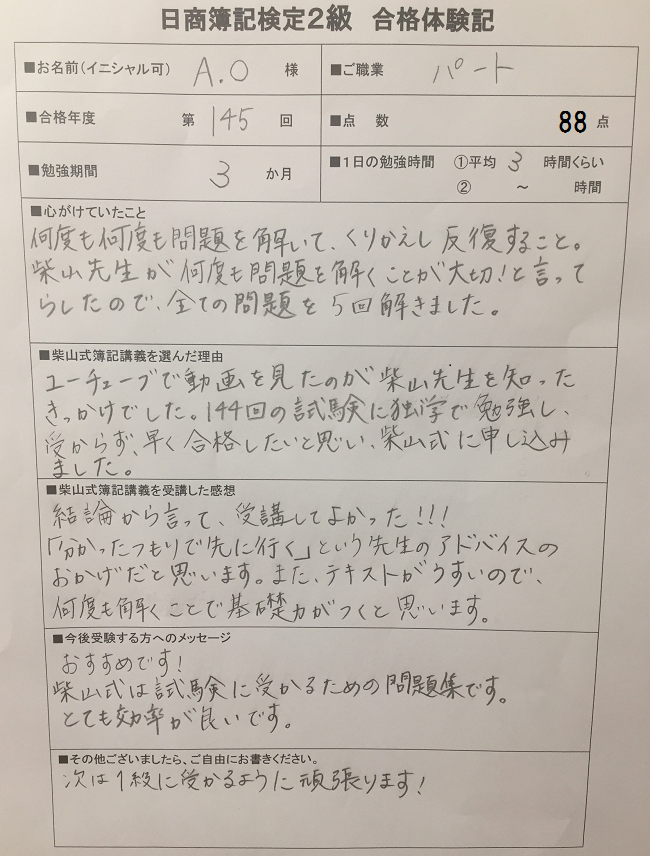 日商簿記検定2級 合格体験記
■お名前(イニシャル可) A.O 様 ■ご職業 パート
■合格年度 第 145 回 ■点 数 88 点
■勉強期間 3 か月 ■1日の勉強時間 ①平均 3 時間くらい
② ～ 時間
■心がけていたこと
何度も何度も問題を解いて、くりかえし反復すること。
柴山先生が何度も問題を解くことが大切!と言って
らしたので、全ての問題を5回解きました。
■柴山式簿記講義を選んだ理由
ユーチューブで動画を見たのが柴山先生を知った
きっかけでした。144回の試験に独学で勉強し、
受からず、早く合格したいと思い、柴山式に申し込み
ました。
■柴山式簿記講義を受講した感想
結論から言って、受講してよかった!!!
「分かったつもりで先に行く」という先生のアドバイスの
おかげだと思います。また、テキストがうすいので、
何度も解くことで基礎力がつくと思います。
■今後受験する方へのメッセージ
おすすめです!
柴山式は試験に受かるための問題集です。
とても効率が良いです。
■その他ございましたら、ご自由にお書きください。
次は1級に受かるように頑張ります!